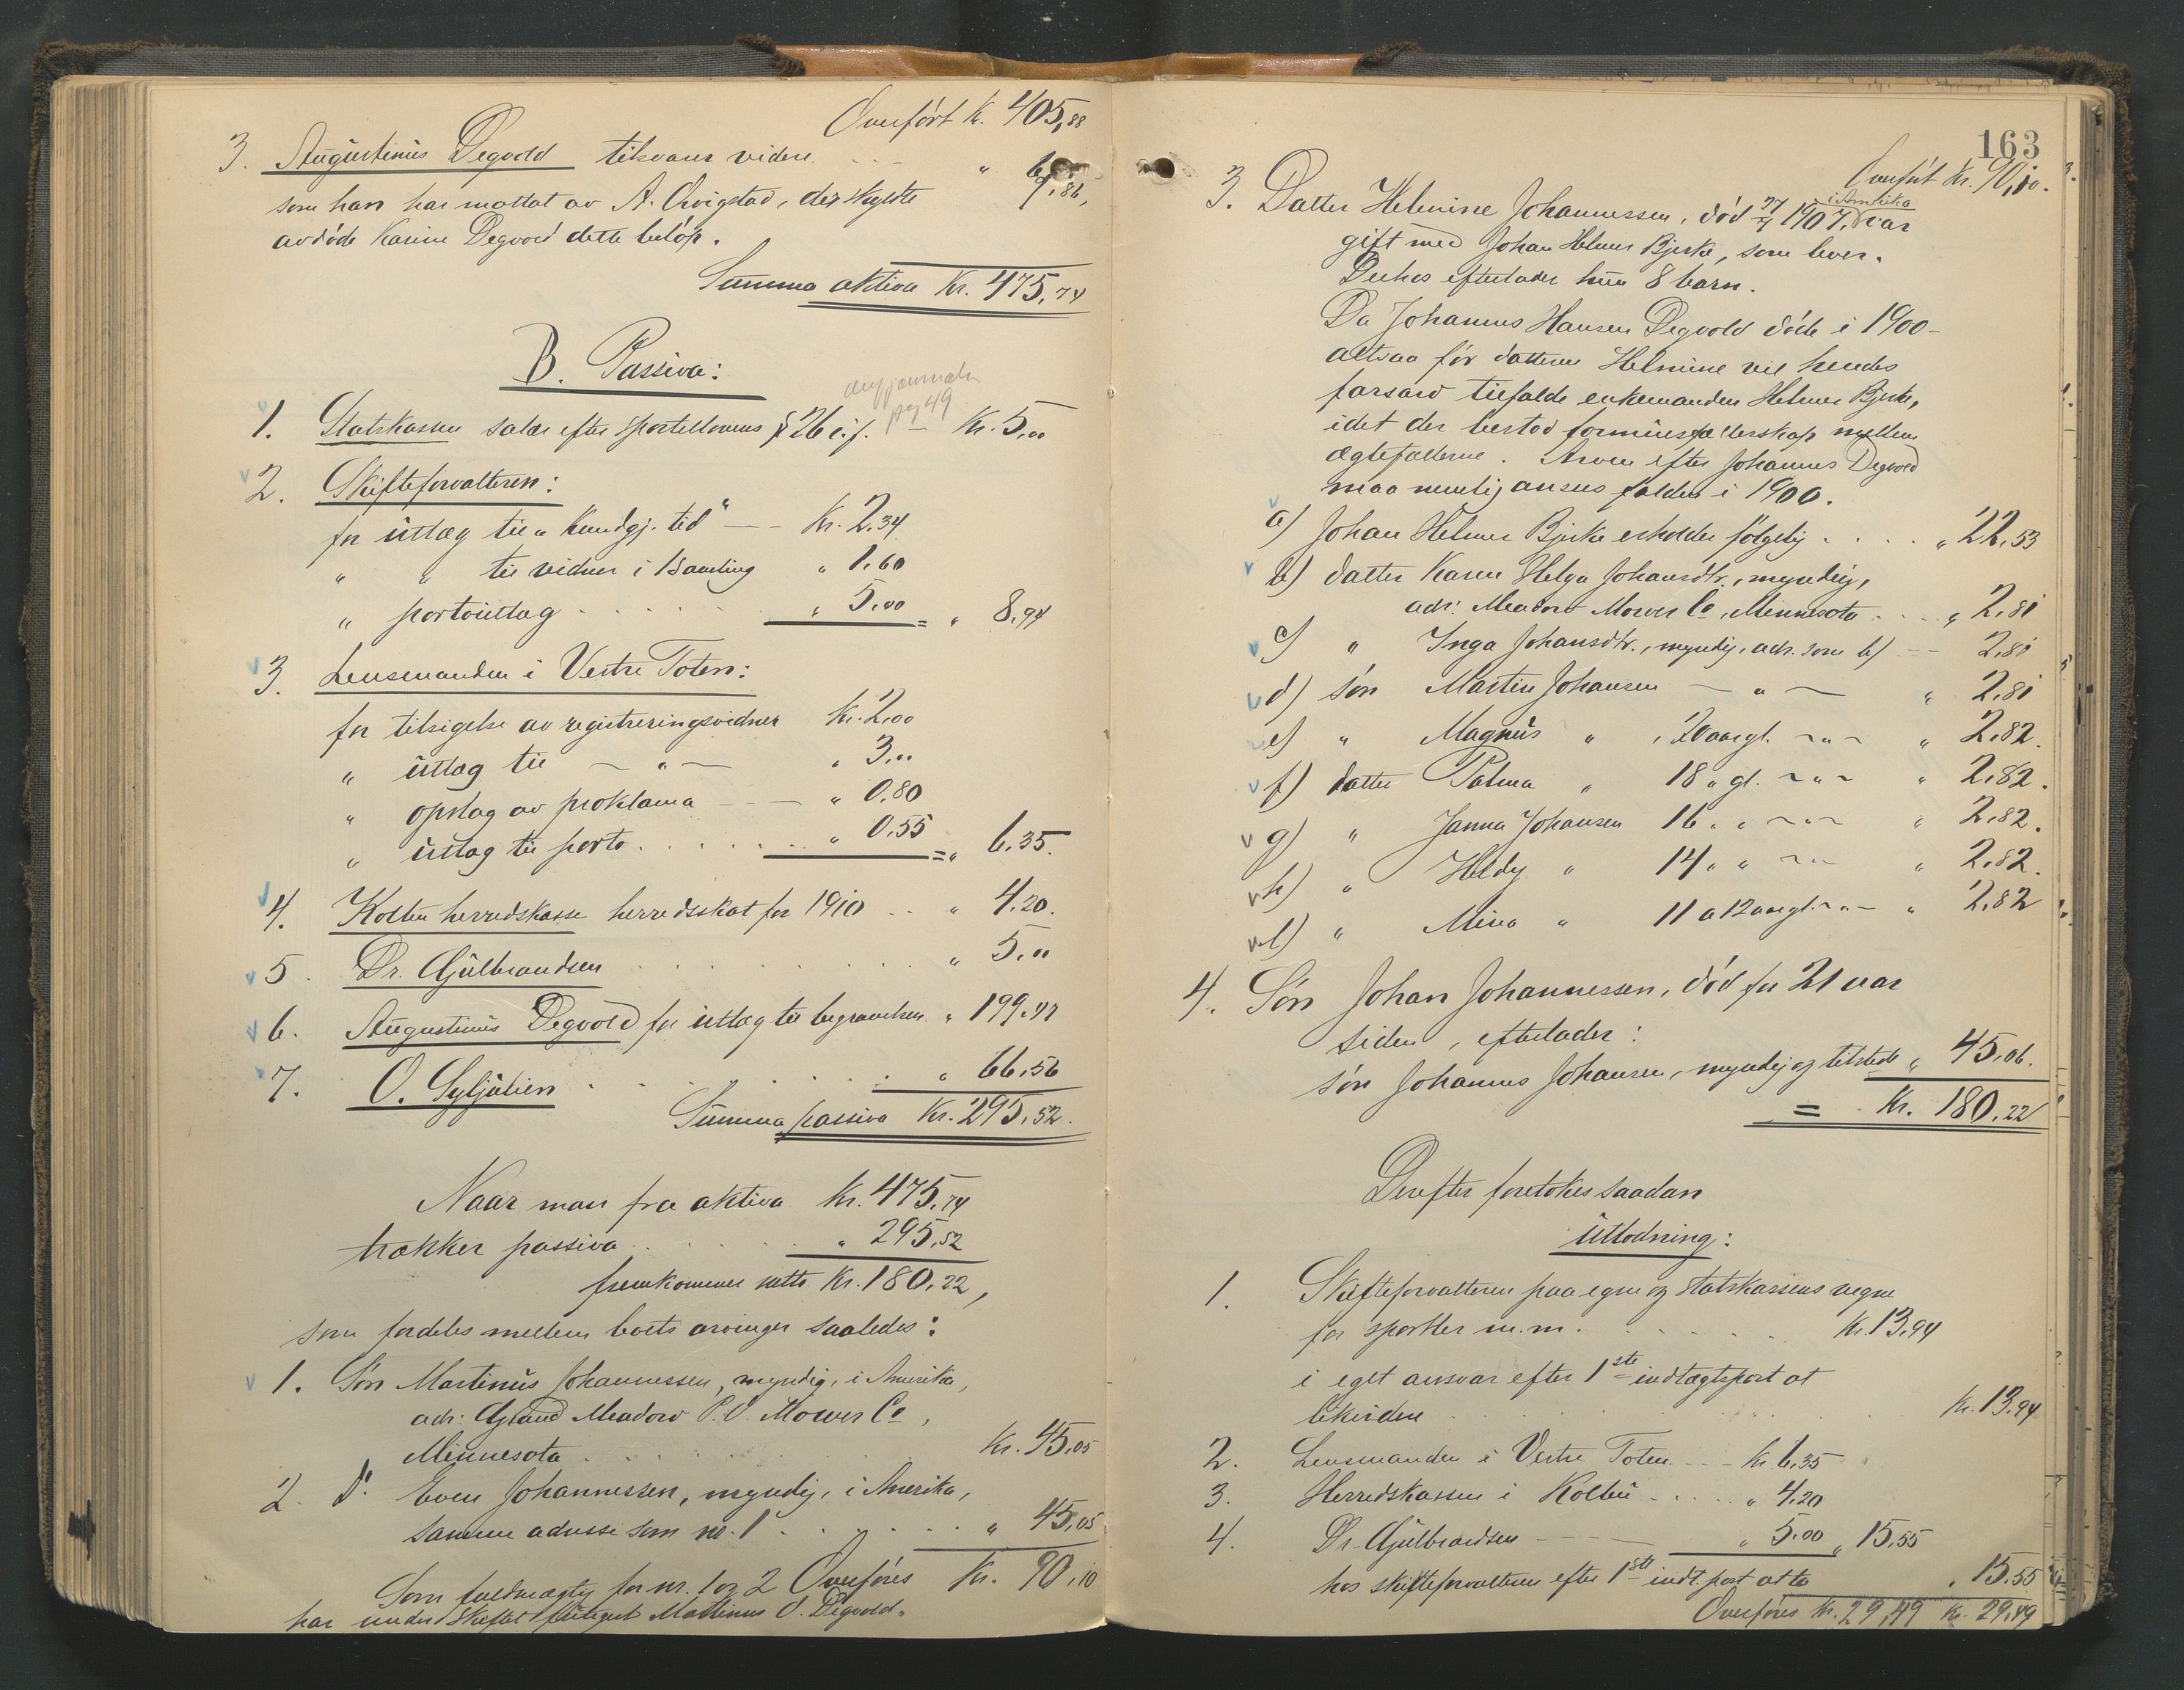 Overført kr. 405,88
3. Augustinus Degvold tilsvarer videre . . . "
som han har mottat av A. Qvigstad, der skyldte 9,86,
avdøde Karine Degvold dette beløp.
Summa aktiva kr. 475,74
B. Passiva:
pag 49
1. Statskassen salær efter sportellovens § 26 i.f. — kr. 5,00
2. Skifteforvalteren:
for utlæg til "Kundgj. tid" — - kr. 2,34
" " til vidner i 1 samling " 1,60
" portoutlæg . . . . . " 5,00 = " 8,94
3. Lensmanden i Vestre Toten:
for tilsigelse av registreringsvidner kr. 2,00
" utlæg til — " — " 3,00
" opslag av proklama - - — " 0,80
" utlæg til porto . . . . . . " 0,55 = " 6,35.
4. Kolbu herredskasse herredsskat for 1910 . . " 4,20.
5. Dr. Gulbrandsen . . . . . . . " 5,00
6. Augustinus Degvold for utlæg til begravelsen " 199,47
7. O. Syljulien . . . . . . . " 66,56
Summa passiva kr. 295,52.
Naar man fra aktiva kr. 475,74
trækker passiva . . . . . " 295,52
fremkommer netto kr. 180,22,
som fordeles mellem boets arvinger saaledes:
1. Søn Martinus Johannessen, myndig, i Amerika,
adr: Grand Meadow P.O. Mower Co,
Minnesota . . . . . . . . kr. 45,05
2. Do. Even Johannessen, myndig, i Amerika,
samme adresse som no. 1 . . . . . . " 45,05
Overføres kr. 90,10
Som fuldmægtig for nr. 1 og 2
har under skiftet fungert Martinus O. Degvold.
163
Overført kr. 90,10.
i Amerika
3. Datter Helmine Johannessen, død 27/4 1907, var
gift med Johan Helmer Bjerke, som lever.
Derhos efterlader hun 8 barn.
Da Johannes Hansen Degvold døde i 1900 -
altsaa før datteren Helmine vil hendes
farsarv tilfalde enkemanden Helmer Bjerke,
idet der bestod formuesfællesskap mellem
ægtefællerne. Arven efter Johannes Degvold
maa nemlig ansees falden i 1900.
a) Johan Helmer Bjerke erholder følgelig . . . . " 22,53
b) datter Karen Helga Johansdtr., myndig,
adr: Meadow Mower Co, Minnesota . . . . " 2,81
c) " Inga Johansdtr., myndig, adr. som b) - — 2,81
d) søn Martin Johansen — " — " 2,81
e) " Magnus " , 20 aargl. — " — " 2,82.
f) datter Palma " 18 " gl. — " — " 2,82.
g) " Janna Johansen 16 " " — " — " 2,82.
h) " Heldy " 14 " " — " — " 2,82.
i) " Mina " 11 a 12 aargl. — " — " 2,82
4. Søn Johan Johannessen, død for 21 aar
siden, efterlader:
søn Johannes Johansen, myndig og tilstede " 45,06.
= kr. 180,22
Derefter foretokes saadan
Utlodning:
1. Skifteforvalteren paa egne og statskassens vegne
for sportler m.m. . . . . . . kr. 13,94
i eget ansvar efter 1ste indtægtspost at
likvidere . . . . . . . . . . kr. 13,94
2. Lensmanden i Vestre Toten - - - kr. 6,35
3. Herredskassen i Kolbu . . . . " 4,20
4. Dr. Gulbrandsen - - — — " 5,00 " 15,55
hos skifteforvalteren efter 1ste indt. post at ta " 15,55
Overføres kr. 29,49 kr. 29,49